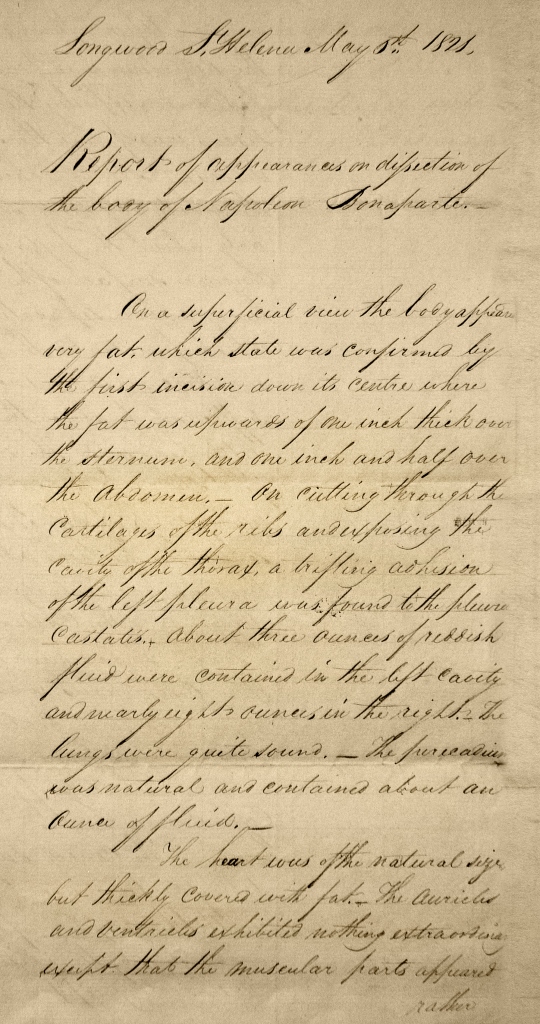 Longwood St. Helena May 6th. 1821.
Report of appearances on dissection of
the body of Napoleon Bonaparte.—
On a superficial view the body appear
very fat. which state was confirmed by
the first incision down its centre where
the fat was upwards of one inch thick over
the sternum, and one inch and half over
the Abdomen.— On cutting through the
Cartilages of the ribs and exposing the
Cavity of the thorax, a trifling adhesion
of the left pleura was found to the pleura
Costatis. About three ounces of reddish
fluid were contained in the left cavity
and nearly eight ounces in the right.— The
lungs were quite sound. — The
was natural and contained about an
Ounce of fluid.—
The heart was of the natural size
but thickly covered with fat.— The auricles
and ventricles exhibited nothing extraordinary
except that the muscular parts appeared
rather